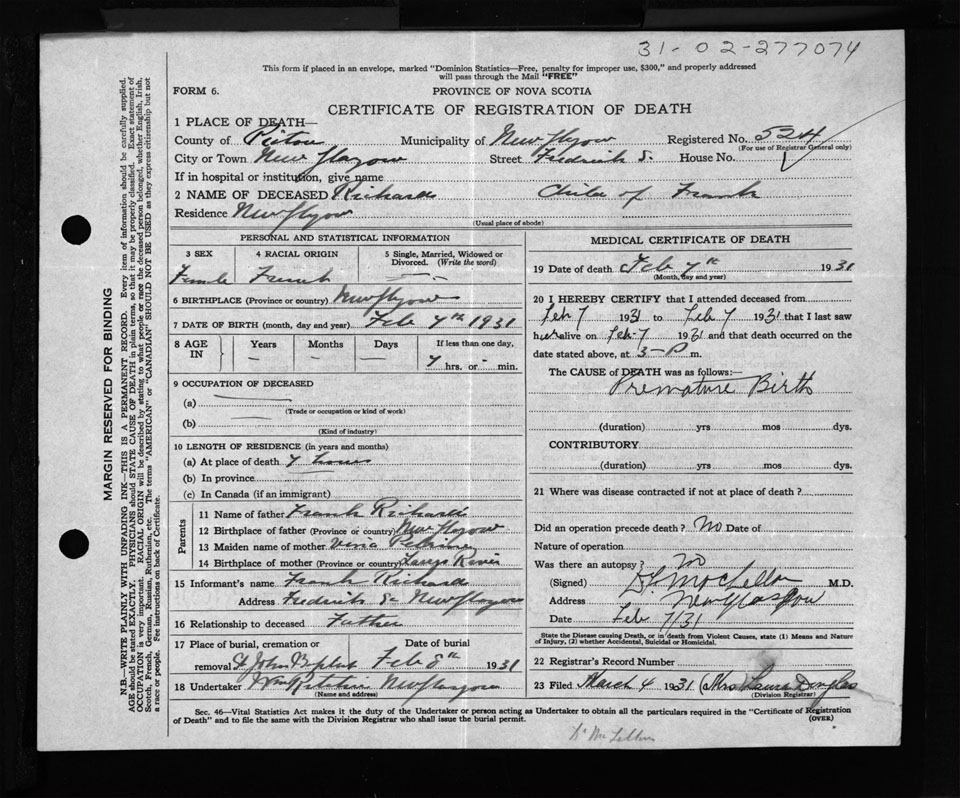 31-02-277074
This form if placed in an envelope, marked "Dominion Statistics—Free, penalty for improper use, $300," and properly addressed
will pass through the Mail "FREE"
FORM 6.
PROVINCE OF NOVA SCOTIA
CERTIFICATE OF REGISTRATION OF DEATH
1 PLACE OF DEATH—
County of Pictou Municipality of New Glasgow Registered No. 524
(For use of Registrar General only)
City or Town New Glasgow Street Fredrick S. House No.
If in hospital or institution, give name
2 NAME OF DECEASED Richards Child of Frank
Residence New Glasgow
(Usual place of abode)
PERSONAL AND STATISTICAL INFORMATION
3 SEX
Female
4 RACIAL ORIGIN
French
5 Single, Married, Widowed or
Divorced. (Write the word)
6 BIRTHPLACE (Province or country) New Glasgow
7 DATE OF BIRTH (month, day and year) Feb 7th 1931
8 AGE
IN
Years
—
Months
—
Days
—
If less than one day,
7 hrs. or - min.
9 OCCUPATION OF DECEASED
(a)
(Trade or occupation or kind of work)
(b)
(Kind of industry)
10 LENGTH OF RESIDENCE (in years and months)
(a) At place of death 7 hours
(b) In province
(c) In Canada (if an immigrant)
Parents
11 Name of father Frank Richards
12 Birthplace of father (Province or country) New Glasgow
13 Maiden name of mother
14 Birthplace of mother (Province or country) River
15 Informant's name Frank Richards
Address Fredrick St New Glasgow
16 Relationship to deceased Father
17 Place of burial, cremation or
removal St John Baptist
Date of burial
Feb 8th 1931
18 Undertaker Wm Ritchie New Glasgow
(Name and address)
MEDICAL CERTIFICATE OF DEATH
19 Date of death Feb 7th 1931
(Month, day and year)
20 I HEREBY CERTIFY that I attended deceased from
Feb 7 1931 to Feb 7 1931 that I last saw
her alive on Feb 7 1931 and that death occurred on the
date stated above, at 3-P m.
The CAUSE of DEATH was as follows:—
Premature Birth
(duration) yrs mos dys.
CONTRIBUTORY
(duration) yrs mos dys.
21 Where was disease contracted if not at place of death?
Did an operation precede death? No Date of
Nature of operation
Was there an autopsy? No
(Signed) M.D.
Address New Glasgow
Date Feb 7/31
State the Disease causing Death, or in death from Violent Causes, state (1) Means and Nature
of Injury, (2) whether Accidental, Suicidal or Homicidal.
22 Registrar's Record Number
23 Filed March 4 1931 (Mrs) Laura Douglas
(Division Registrar)
Sec. 46—Vital Statistics Act makes it the duty of the Undertaker or person acting as Undertaker to obtain all the particulars required in the "Certificate of Registration
of Death" and to file the same with the Division Registrar who shall issue the burial permit.
(OVER)
MARGIN RESERVED FOR BINDING
N.B.—WRITE PLAINLY WITH UNFADING INK—THIS IS A PERMANENT RECORD. Every item of information should be carefully supplied.
AGE should be stated EXACTLY. PHYSICIANS should STATE CAUSE OF DEATH in plain terms, so that it may be properly classified. Exact statement of
OCCUPATION is very important. RACIAL ORIGIN will be described by stating to what people or race the deceased person belonged, whether English, Irish,
Scotch, French, German, Russian, Ruthenian, etc. The terms "AMERICAN" or "CANADIAN" SHOULD NOT BE USED as they express citizenship but not
a race or people. See instructions on back of Certificate.